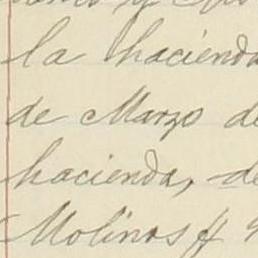 la hacienda
de Marzo de
hacienda, de
Molinos y